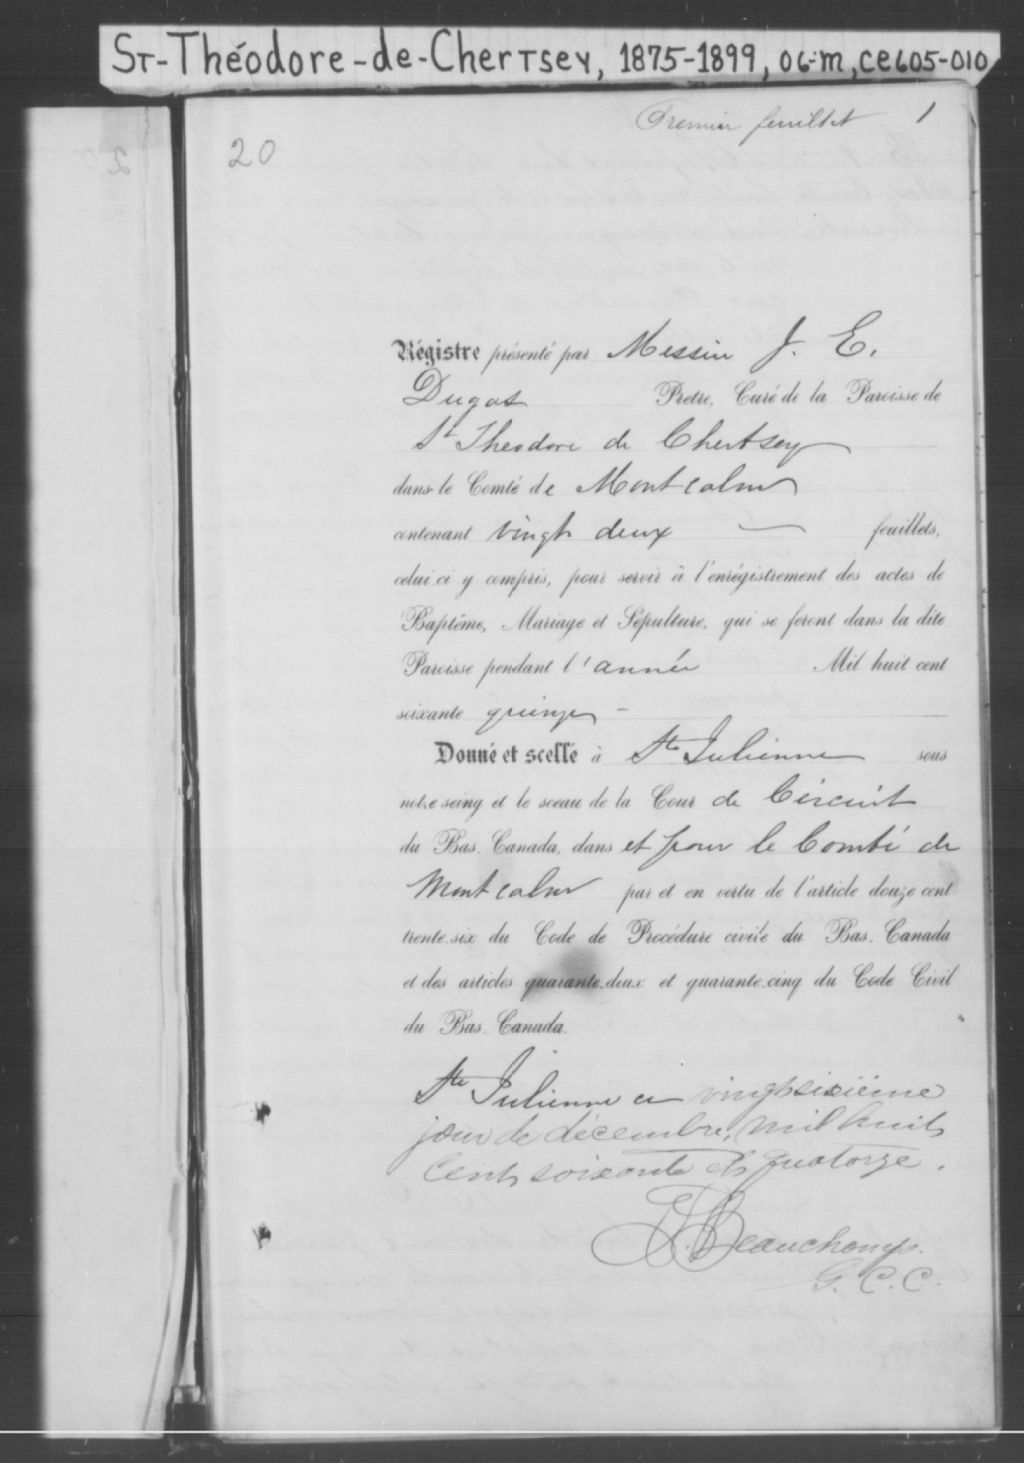 St-Théodore-de-Chertsey, 1875-1899, 06-m, CE605-010
Premier feuillet 1
20
Régistre présenté par Messire J. E.
Dugas Pretre, Curé de la Paroisse de
St Theodore de Chertsey
dans le Comté de Montcalm
contenant vingt deux — feuillets,
celui.ci y compris, pour servir à l'enrégistrement des actes de
Baptême, Mariage et Sépulture, qui se feront dans la dite
Paroisse pendant l'année Mil huit cent
soixante quinze -
Donné et scellé à Ste Julienne sous
notre seing et le sceau de la Cour de Circuit
du Bas-Canada, dans et pour le Comté de
Montcalm par et en vertu de l'article douze cent
trente-six du Code de Procédure civile du Bas-Canada
et des articles quarante-deux et quarante-cinq du Code Civil
du Bas-Canada.
Ste Julienne ce vingtsixième
jour de décembre, mil huit
cent soixante et quatorze.
Beauchamp.
G. C. C.